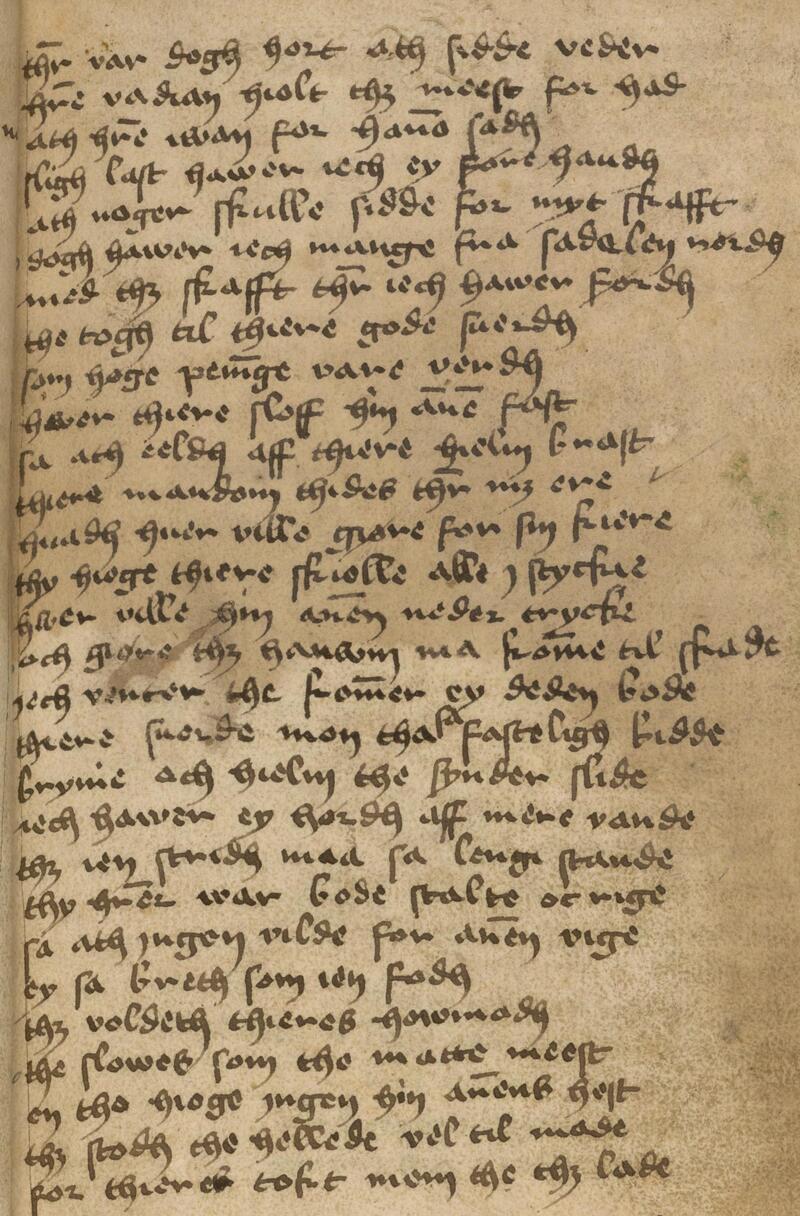 thr̄ var dogh hort ath sidde veder
hr̄e vadian hiolt thꝫ meest for had
ath hr̄e iwan for hanō sadh
sligh last hawer iech ey fore handh
ath noger skulle sidde for myt skafft
dogh hawer iech mange fra sadelen nordh
med thꝫ skafft thr̄ iech hawer fordh
the togh til thiere gode suerdh
som hoge pēnīge vare verdh
hwer thiere sloff hin ān̄e fast
sa ath eeldh aff thiere hielm brast
thiere mandom thides thr̄ mꝫ ere
huadh huer ville giøre for sin kiere
thy hioge thiere skiolle alle j stycke
hwer ville hin an̄en neder trycke
och giøre thꝫ hanwm ma kom̄e til skade
iech venter the kom̄er ey deden bode
thiere suerde mon tha fasteligh bidde
brynie och hielm the synder slide
iech hawer ey hørdh aff mere vande
thꝫ ien stridh maa sa lengi stande
thy hr̄er war bode stalte oc rige
sa ath jngen vilde for an̄en vige
ey sa breth som ien fodh
thꝫ voldeth thieres howmodh
the slowes som the matte meest
en the hioge jngen hin an̄ens hest
thꝫ stodh the hellede vel til made
for thieres tokt mom the thꝫ lade